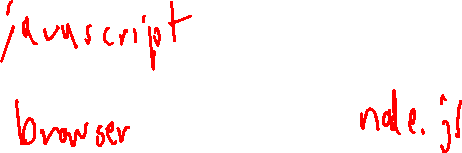 javascript
browser node.js